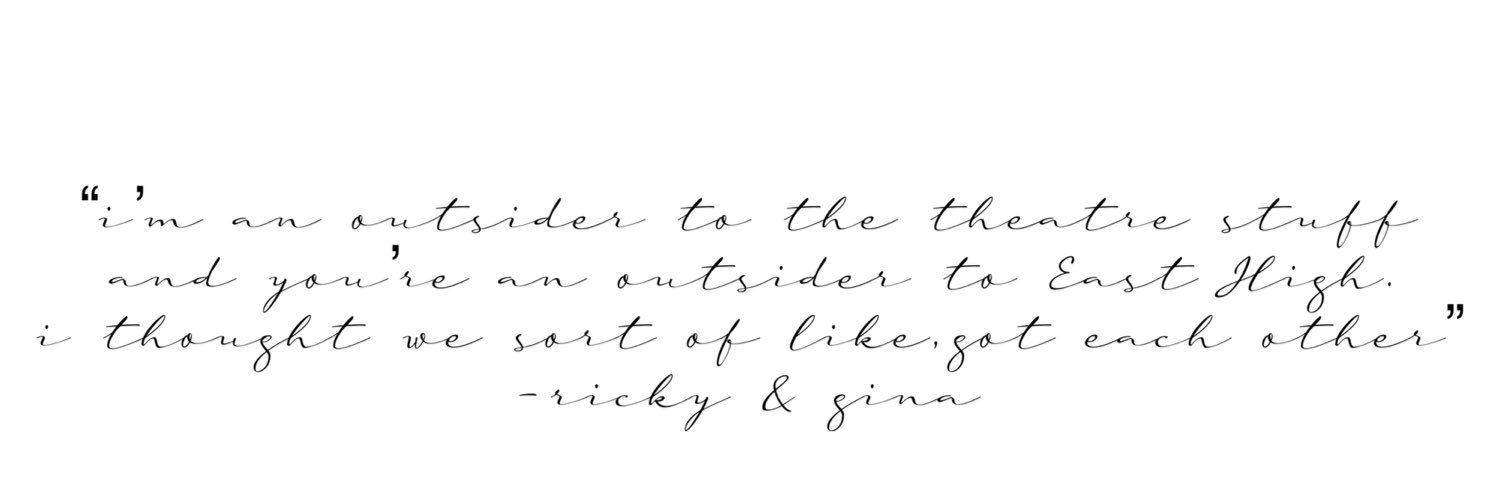 “i’m an outsider to the theatre stuff
and you’re an outsider to East High.
i thought we sort of like,got each other”
-ricky & gina